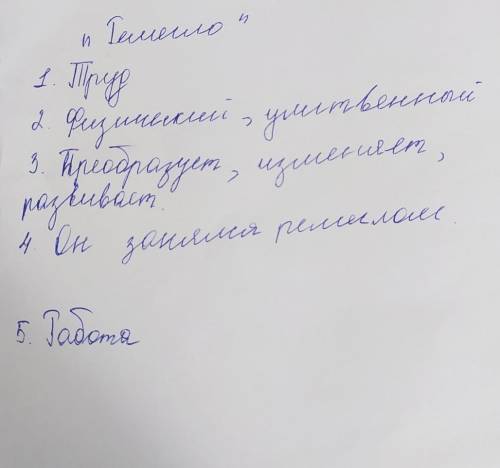 "Ремесло"
1. Труд
2. Физический, умственный
3. Преобразует, изменяет,
развивает.
4. Он занялся ремеслом.
5. Работа